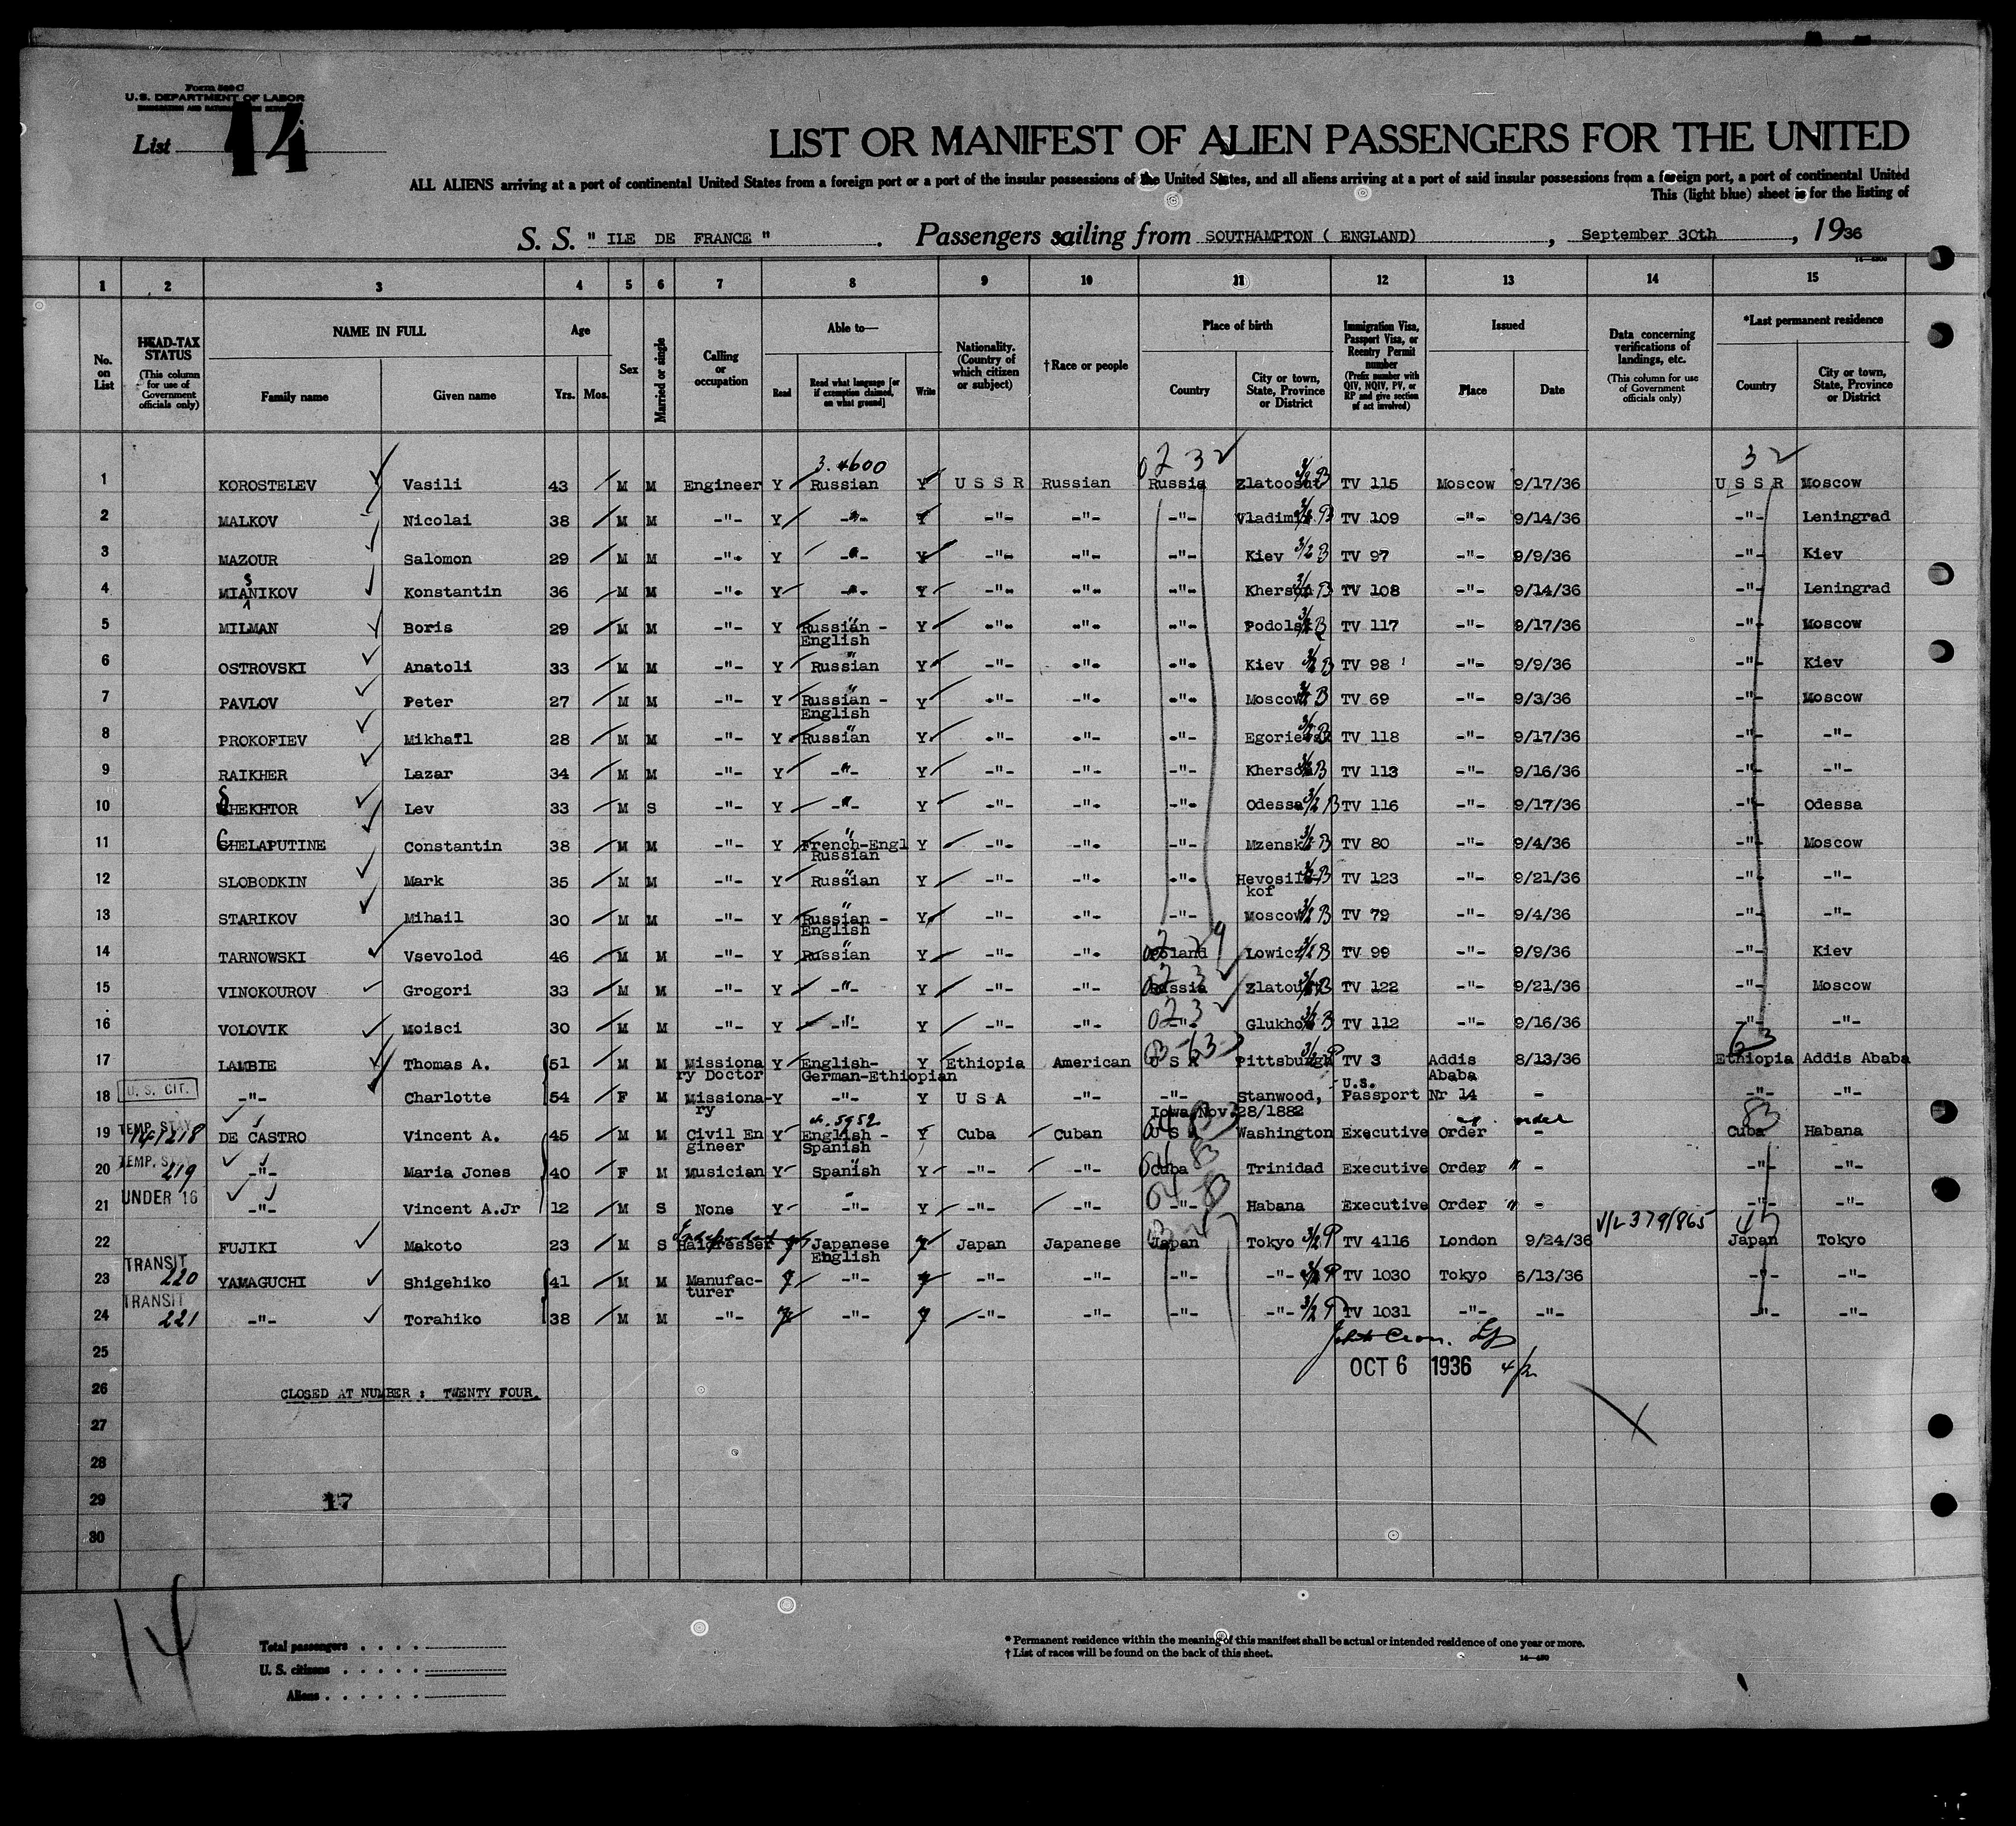 Form 500 C
U. S. DEPARTMENT OF LABOR
List 14
LIST OR MANIFEST OF ALIEN PASSENGERS FOR THE UNITED
ALL ALIENS arriving at a port of continental United States from a foreign port or a port of the insular possessions of the United States, and all aliens arriving at a port of said insular possessions from a foreign port, a port of continental United
This (light blue) sheet is for the listing of
S. S. " ILE DE FRANCE " . Passengers sailing from SOUTHAMPTON ( ENGLAND) , September 30th , 1936
1 2 3 4 5 6 7 8 9 10 11 12 13 14 15
No. on List
HEAD-TAX STATUS (This column for use of Government officials only)
NAME IN FULL Family name Given name
Age Yrs. Mos.
Sex
Married or single
Calling or occupation
Able to— Read Read what language [or if exemption claimed, on what ground] Write
Nationality. (Country of which citizen or subject)
†Race or people
Place of birth Country City or town, State, Province or District
Immigration Visa, Passport Visa, or Reentry Permit number (Prefix number with QIV, NQIV, PV, or RP and give section of act involved)
Issued Place Date
Data concerning verifications of landings, etc. (This column for use of Government officials only)
*Last permanent residence Country City or town, State, Province or District
3. 4600 32
1 KOROSTELEV Vasili 43 M M Engineer Y Russian Y U S S R Russian Russia Zlatoosk TV 115 Moscow 9/17/36 U S S R Moscow
2 MALKOV Nicolai 38 M M -"- Y -"- Y -"- -"- -"- Vladimir TV 109 -"- 9/14/36 -"- Leningrad
3 MAZOUR Salomon 29 M M -"- Y -"- Y -"- -"- -"- Kiev 3/2 B TV 97 -"- 9/9/36 -"- Kiev
4 MIASNIKOV Konstantin 36 M M -"- Y -"- Y -"- -"- -"- Kherson TV 108 -"- 9/14/36 -"- Leningrad
5 MILMAN Boris 29 M M -"- Y Russian - English Y -"- -"- -"- Podolsk TV 117 -"- 9/17/36 -"- Moscow
6 OSTROVSKI Anatoli 33 M M -"- Y Russian Y -"- -"- -"- Kiev 3/2 B TV 98 -"- 9/9/36 -"- Kiev
7 PAVLOV Peter 27 M M -"- Y Russian - English Y -"- -"- -"- Moscow TV 69 -"- 9/3/36 -"- Moscow
8 PROKOFIEV Mikhail 28 M M -"- Y Russian Y -"- -"- -"- Egorievsk TV 118 -"- 9/17/36 -"- -"-
9 RAIKHER Lazar 34 M M -"- Y -"- Y -"- -"- -"- Kherson TV 113 -"- 9/16/36 -"- -"-
10 SHEKHTOR Lev 33 M S -"- Y -"- Y -"- -"- -"- Odessa 3/2 B TV 116 -"- 9/17/36 -"- Odessa
11 CHELAPUTINE Constantin 38 M M -"- Y French-Engl Russian Y -"- -"- -"- Mzensk TV 80 -"- 9/4/36 -"- Moscow
12 SLOBODKIN Mark 35 M M -"- Y Russian Y -"- -"- -"- TV 123 -"- 9/21/36 -"- -"-
kof
13 STARIKOV Mihail 30 M M -"- Y Russian - English Y -"- -"- -"- Moscow TV 79 -"- 9/4/36 -"- -"-
14 TARNOWSKI Vsevolod 46 M M -"- Y Russian Y -"- -"- Poland Lowicz TV 99 -"- 9/9/36 -"- Kiev
15 VINOKOUROV Grogori 33 M M -"- Y -"- Y -"- -"- Russia Zlatoust TV 122 -"- 9/21/36 -"- Moscow
16 VOLOVIK Moisci 30 M M -"- Y -"- Y -"- -"- -"- Glukhov TV 112 -"- 9/16/36 -"- -"-
17 LAMBIE Thomas A. 51 M M Missionary Doctor Y English-German-Ethiopian Y Ethiopia American U S A Pittsburgh TV 3 Addis Ababa 8/13/36 Ethiopia Addis Ababa
18 U. S. CIT. -"- Charlotte 54 F M Missionary Y -"- Y U S A -"- -"- Stanwood, Iowa Nov. 28/1882 U.S. Passport Nr 14 - -"- -"-
19 TEMP. STAY 141218 DE CASTRO Vincent A. 45 M M Civil Engineer Y English - Spanish Y Cuba Cuban U S A Washington Executive Order - Cuba Habana
20 TEMP. STAY 219 -"- Maria Jones 40 F M Musician Y Spanish Y -"- -"- Cuba Trinidad Executive Order " - -"- -"-
21 UNDER 16 -"- Vincent A.Jr 12 M S None Y -"- Y -"- -"- -"- Habana Executive Order " - -"- -"-
22 FUJIKI Makoto 23 M S Hairdresser Y Japanese English Y Japan Japanese Japan Tokyo 3/2 P TV 4116 London 9/24/36 V/L 379/865 Japan Tokyo
23 TRANSIT 220 YAMAGUCHI Shigehiko 41 M M Manufacturer Y -"- Y -"- -"- -"- -"- 3/2 P TV 1030 Tokyo 6/13/36 -"- -"-
24 TRANSIT 221 -"- Torahiko 38 M M -"- Y -"- Y -"- -"- -"- -"- 3/2 P TV 1031 -"- -"- -"- -"-
25
OCT 6 1936
26 CLOSED AT NUMBER : TWENTY FOUR.
27
28
29 17
30
14
Total passengers . . . .
U. S. citizens . . . . .
Aliens . . . . . .
* Permanent residence within the meaning of this manifest shall be actual or intended residence of one year or more.
† List of races will be found on the back of this sheet.